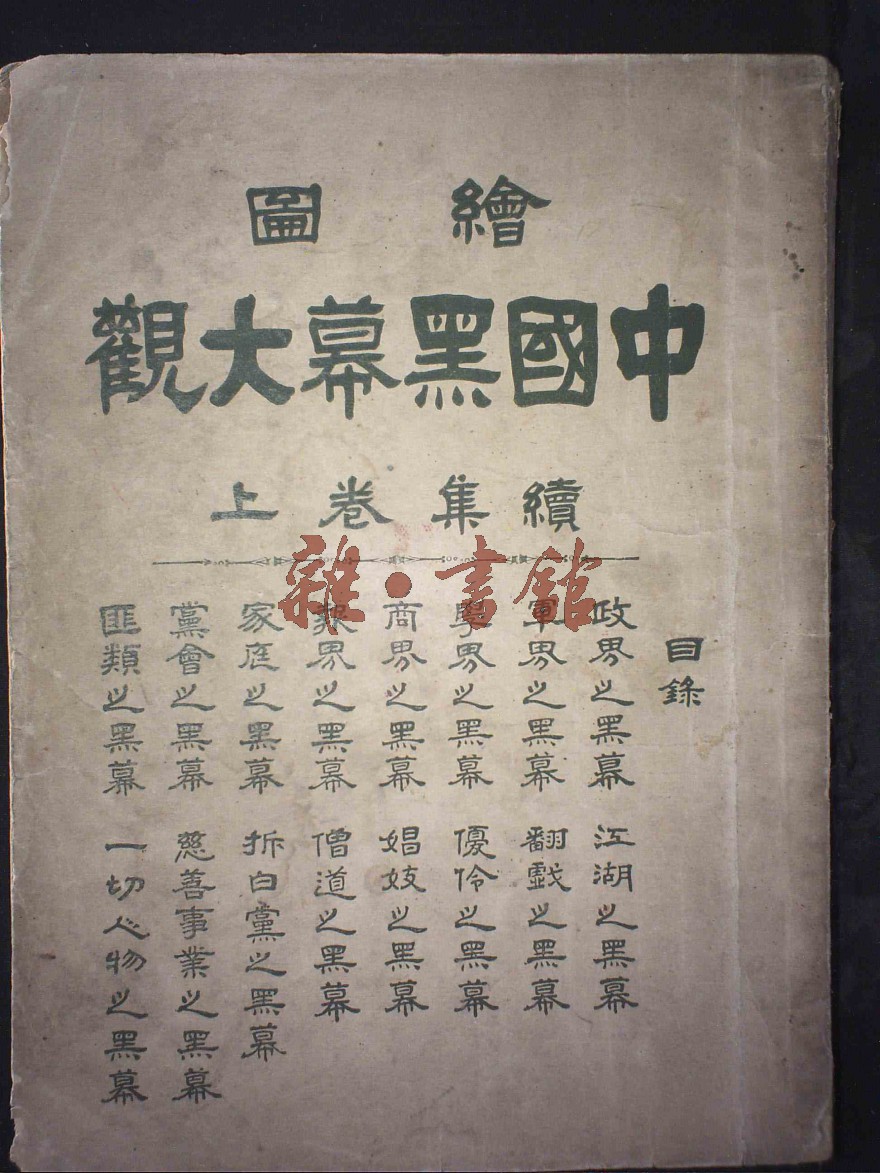 繪圖
中國黑幕大觀
續集卷上
雜·書館
目錄
政界之黑幕
軍界之黑幕
學界之黑幕
商界之黑幕
報界之黑幕
家庭之黑幕
黨會之黑幕
匪類之黑幕
江湖之黑幕
翻戲之黑幕
優伶之黑幕
娼妓之黑幕
僧道之黑幕
拆白黨之黑幕
慈善事業之黑幕
一切人物之黑幕